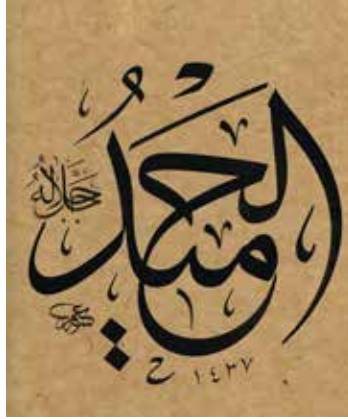 الحميد
جل جلاله
١٤٣٧